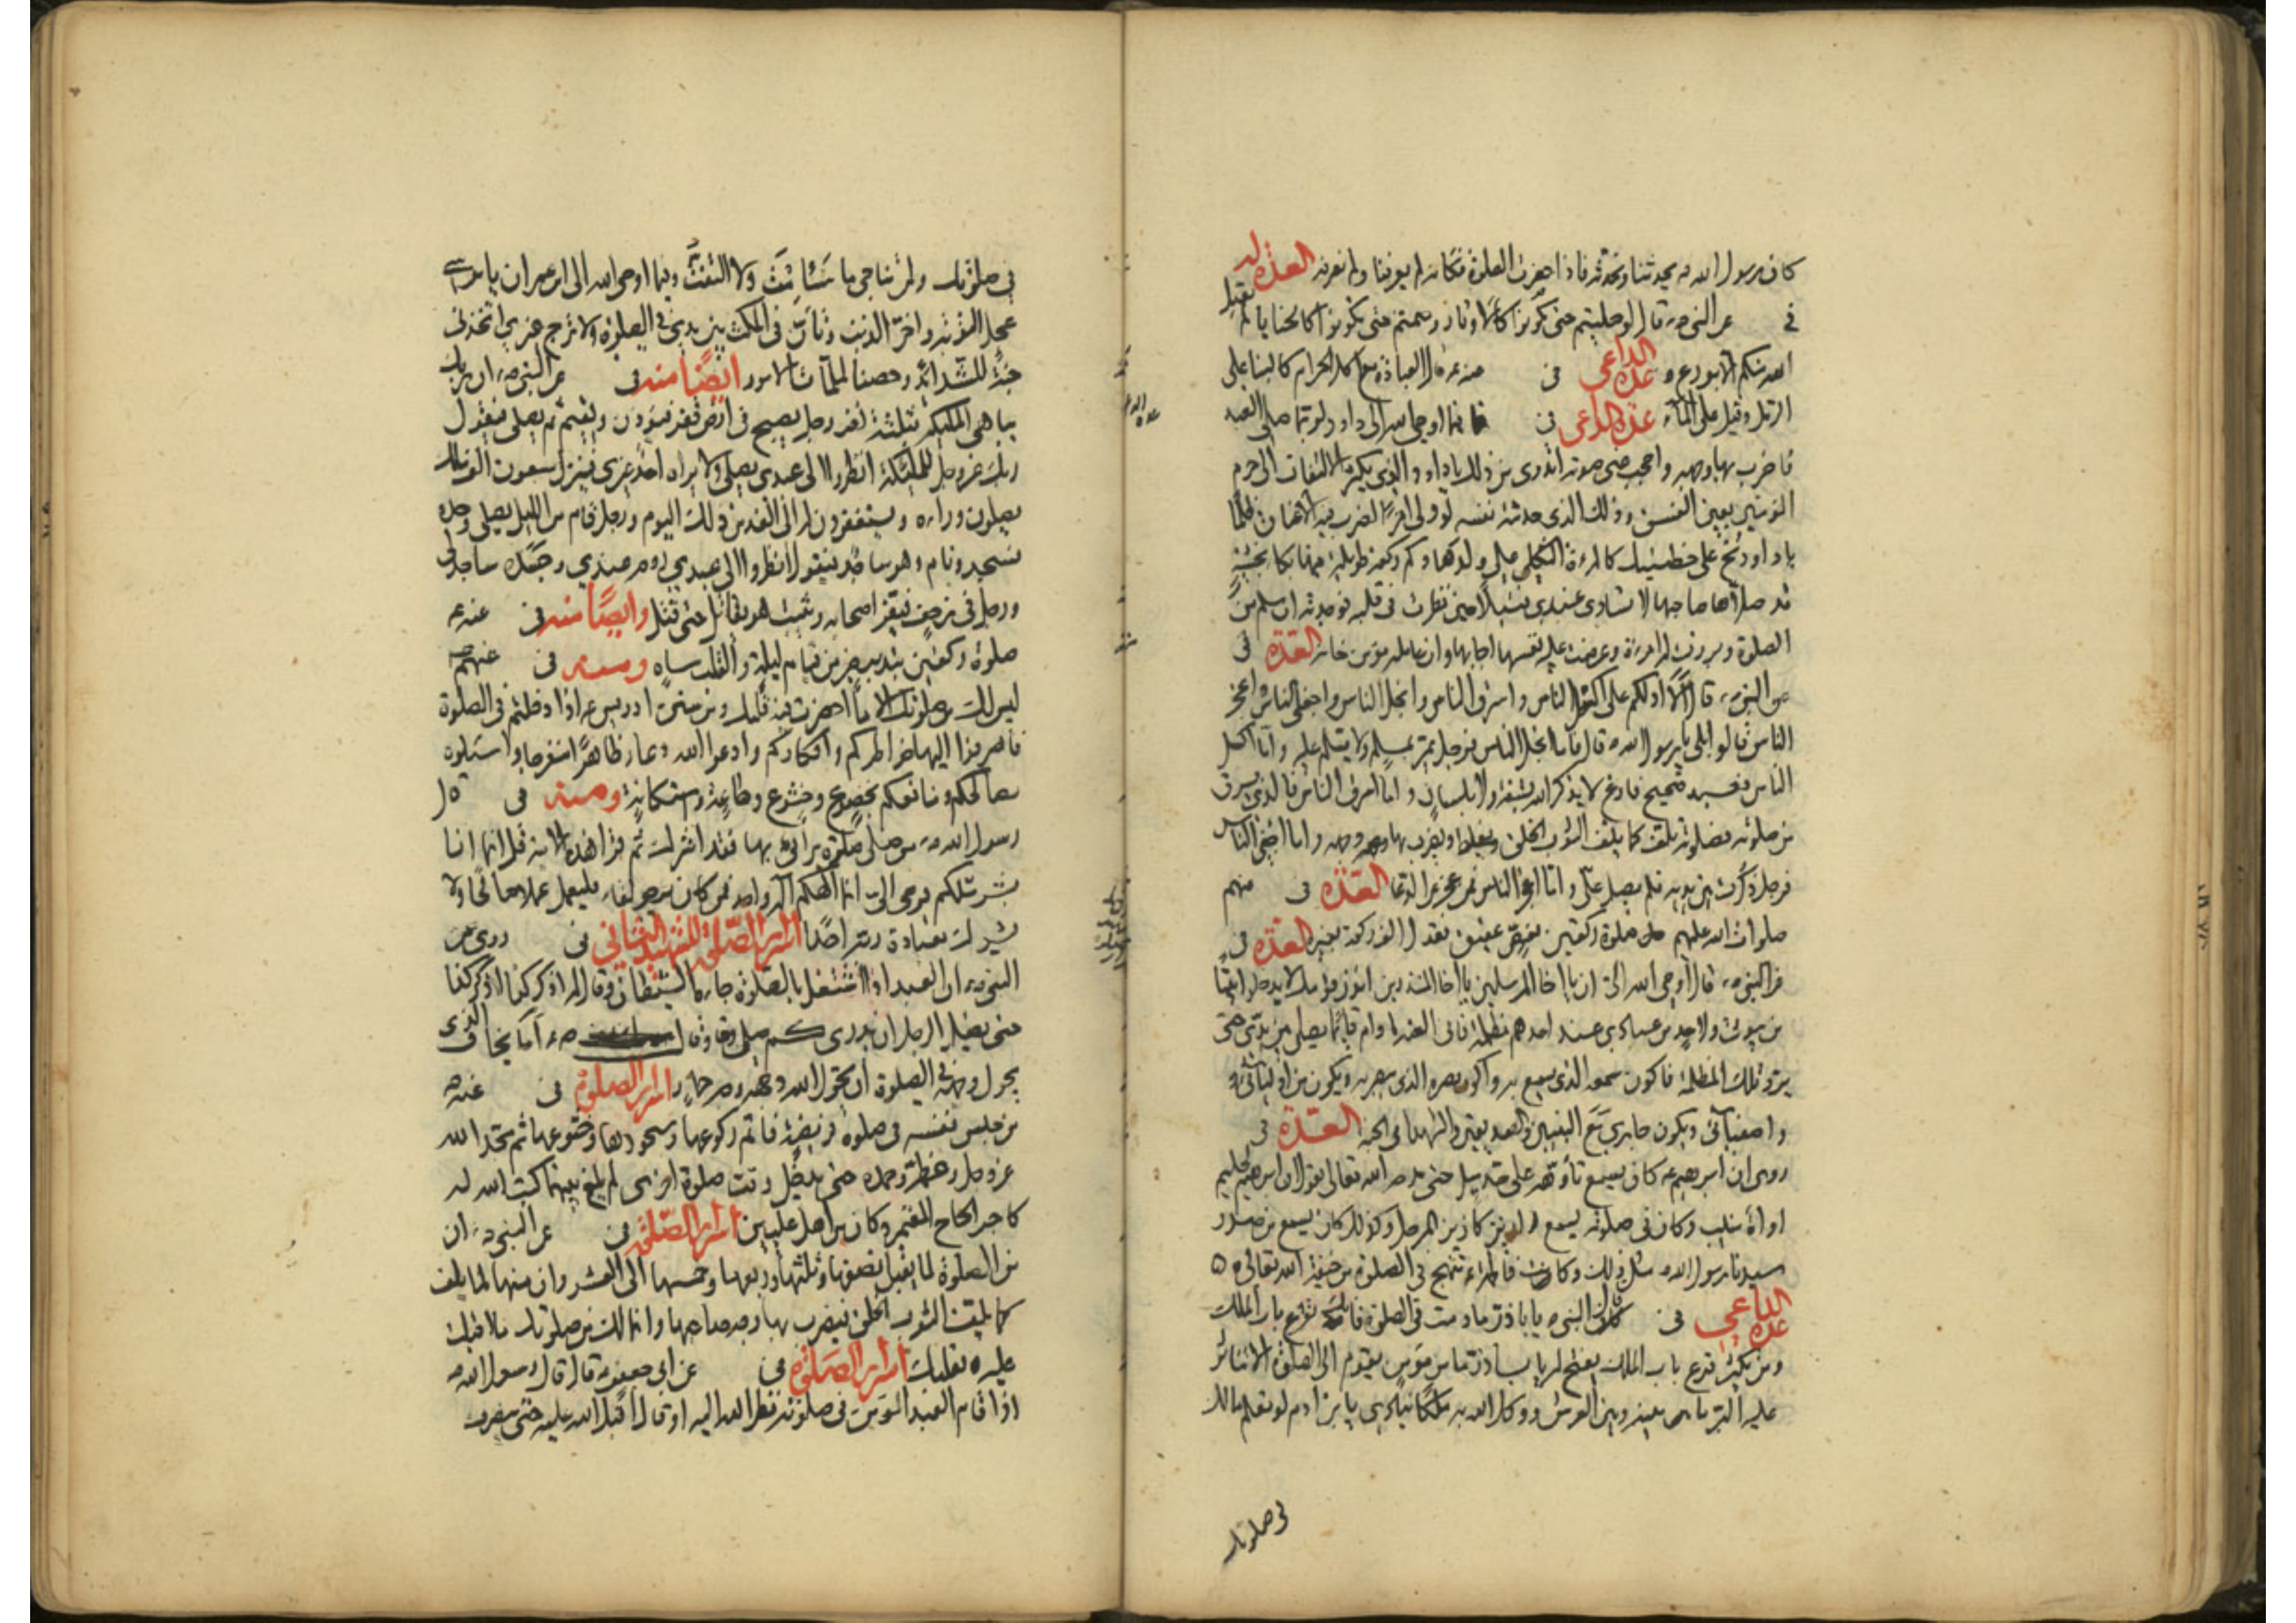 كان رسول الله ص يحدثنا ونحدثه فاذا حضرت الصلوة فكانه لم يعرفنا ولم نعرفه العدة له
في عن النبي ص قال لو صليتم حتى تكونوا كالاوتار وصمتم حتى تكونوا كالحنايا لم يقبل
الله منكم الا بورع و عدة الداعي في عنه ع قال العبادة مع اكل الحرام كالبناء على
الرمل وقيل على الماء عدة الداعي في فيما اوحى الله الى داود ولربما صلى العبد
فاضرب بها وجهه واحجب عني صوته اتدري من ذلك يا داود الذي يكثر الالتفات الى حرم
المؤمنين بعين الفسق وذلك الذي حدثته نفسه لو ولي امرا لضرب فيه الاعناق ظلما
يا داود نح على خطيئتك كالمرءة الثكلى على ولدها وكم ركعة طويلة فيها بكاء بخشية
قد صلاها صاحبها لا تساوي عندي فتيلا حين نظرت في قلبه فوجدته ان سلم من
الصلوة وبرزت له امرءة وعرضت عليه نفسها اجابها وان عامله مؤمن خانه العدة في
عن النبي ص قال الا ادلكم على اكسل الناس واسرق الناس وابخل الناس واجفى الناس واعجز
الناس قالوا بلى يا رسول الله ص قال فاما ابخل الناس فرجل يمر بمسلم ولا يسلم عليه واما اكسل
الناس فعبد صحيح فارغ لا يذكر الله بشفة ولا بلسان واما اسرق الناس فالذي يسرق
من صلوته فصلوته تلف كما يلف الثوب الخلق فيضرب بها وجهه واما اجفى الناس
فرجل ذكرت بين يديه فلم يصل علي واما اعجز الناس فمن عجز عن الدعا العدة في عنهم
صلوات الله عليهم صلوة ركعتين بفص عقيق تعدل الف ركعة بغيره العدة في
عن النبي ص قال اوحى الله الي ان يا اخا المرسلين يا اخا المنذرين انذر قومك لا يدخلوا بيتا
من بيوتي ولاحد من عبادي عند احدهم مظلمة فاني العنه ما دام قائما يصلي بين يدي حتى
يرد تلك المظلمة فاكون سمعه الذي يسمع به واكون بصره الذي يبصر به ويكون من اوليائي و
واصفيائي ويكون جاري مع النبيين والصديقين والشهداء في الجنة العدة في
روي ان ابرهيم ع كان يسمع تأوهه على حد ميل حتى مدحه الله تعالى بقوله ان ابرهيم لحليم
اواه منيب وكان في صلوته يسمع له ازيز كازيز المرجل وكذلك كان يسمع من صدر
سيدنا رسول الله ص مثل ذلك وكانت فاطمة ع تنهج في الصلوة من خيفة الله تعالى
عدة الداعي في قال النبي ص يا با ذر ما دمت في الصلوة فانك تقرع باب الملك
ومن يكثر قرع باب الملك يفتح له يا با ذر ما من مؤمن يقوم الى الصلوة الا تناثر
عليه البر ما بينه وبين العرش ووكل الله به ملكا ينادي يا بن ادم لو تعلم مالك
في صلوتك
في صلوتك ولمن تناجي ما سئمت ولا التفت وفيما اوحى الله الى ابن عمران يا موسى
عجل التوبة واخر الذنب وتأن في المكث بين يدي في الصلوة ولا ترج غيري اتخذني
جنة للشدائد وحصنا لملمات الامور ايضا منه في عن النبي ص ان ربك
يباهي الملئكة بثلثة نفر رجل يصبح في ارض قفر فيؤذن ويقيم ثم يصلي فيقول
ربك عز وجل للملئكة انظروا الى عبدي يصلي ولا يراه احد غيري فينزل سبعون الف ملك
يصلون وراءه ويستغفرون له الى الغد من ذلك اليوم ورجل قام من الليل يصلي وحده
فسجد ونام وهو ساجد فيقول انظروا الى عبدي روحه عندي وجسده ساجد لي
ورجل في زحف فيفر اصحابه ويثبت هو يقاتل حتى قتل وايضا منه في عنه ع
صلوة ركعتين بتدبر خير من قيام ليلة والقلب ساه ومنه في عنهم ص
ليس لك من صلوتك الا ما احضرت فيه قلبك ومن سنن ادريس ع اذا دخلتم في الصلوة
فاصرفوا اليها خواطركم وافكاركم وادعوا الله دعاء ظاهرا متفرجا واسئلوه
مصالحكم ومنافعكم بخضوع وخشوع وطاعة واستكانة ومنه في قال
رسول الله ص من صلى صلوة يرائي بها فقد اشرك ثم قرأ هذه الاية قل انما انا
بشر مثلكم يوحى الي انما الهكم اله واحد فمن كان يرجو لقاء ربه فليعمل عملا صالحا ولا
يشرك بعبادة ربه احدا اسرار الصلوة للشهيد الثاني في روي عن
النبي ص ان العبد اذا اشتغل بالصلوة جاءه الشيطان وقال له اذكر كذا اذكر كذا
حتى يضل الرجل ان يدري كم صلى وقال ص ع اما يخاف الذي
يحول وجهه في الصلوة ان يحول الله وجهه وجه حمار اسرار الصلوة في عنه ص
من حبس نفسه في صلوة فريضة فاتم ركوعها وسجودها وخشوعها ثم مجد الله
عز وجل وعظمه وحمده حتى يدخل وقت صلوة اخرى لم يلغ بينهما كتب الله له
كاجر الحاج المعتمر وكان من اهل عليين اسرار الصلوة في عن النبي ص ان
من الصلوة لما يقبل نصفها وثلثها وربعها وخمسها الى العشر وان منها لما يلف
كما يلف الثوب الخلق فيضرب بها وجه صاحبها وانما لك من صلوتك ما اقبلت
عليه بقلبك اسرار الصلوة في عن ابي جعفر ع قال قال رسول الله ص
اذا قام العبد المؤمن في صلوته نظر الله اليه او قال اقبل الله عليه حتى ينصرف